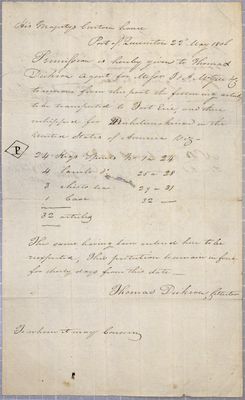 His Majestys Custom house
Port of Queenston 22d May 1806
Permission is hereby given to Thomas
Dickson Agent for Messr
to remove from this port the following articles
to be transported to Fort Erie, and there
reshipped for Michilimackinac in the
United States of America Viz-
24 Kegs Spirits No 1 to 24
4 Barrels Do 25 - 28
3 Chests tea 29 - 31
1 Case 32 —
32 articles
P
The same having been entered here to be
exported, This permission to remain in force
for thirty days from this date —
Thomas Dickson Collector
To whom it may Concern